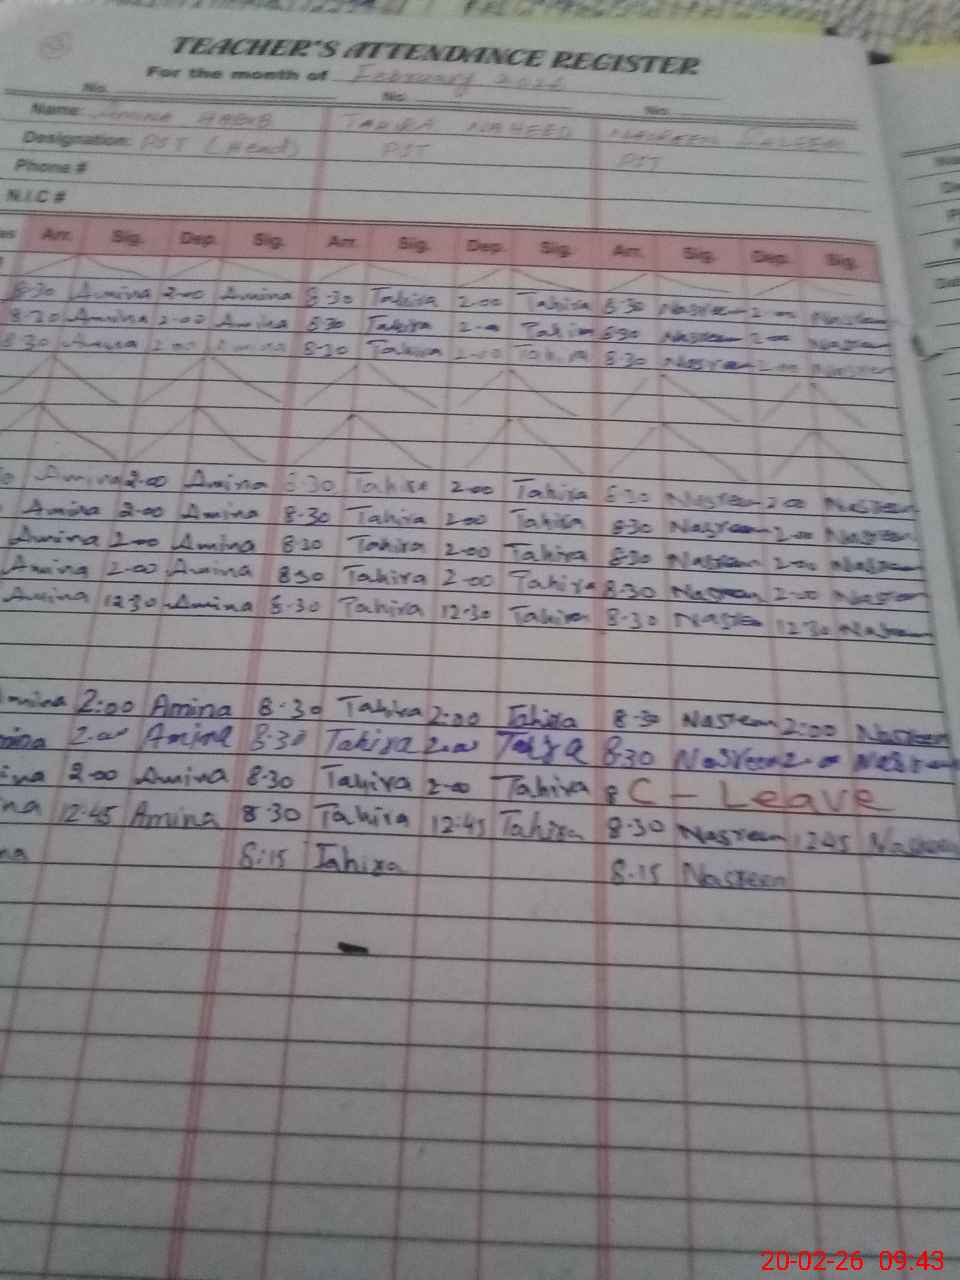 TEACHER'S ATTENDANCE REGISTER
For the month of February 2026
No. No. No.
Name: Amina HABIB TAHIRA NAHEED NASREEN
Designation: PST (Head) PST PST
Phone #
N.I.C #
Arr. Sig. Dep. Sig. Arr. Sig. Dep. Sig. Arr. Sig. Dep. Sig.
8-30 Amina 2-00 Amina 8-30 Tahira 2-00 Tahira 8-30 Nasreen 2-00 Nasreen
8-30 Amina 2-00 Amina 8-30 Tahira 2-00 Tahira 8-30 Nasreen 2-00 Nasreen
8-30 Amina 2-00 Amina 8-30 Tahira 2-00 Tahira 8-30 Nasreen 2-00 Nasreen
Amina 2-00 Amina 8-30 Tahira 2-00 Tahira 8-30 Nasreen 2-00 Nasreen
Amina 2-00 Amina 8-30 Tahira 2-00 Tahira 8-30 Nasreen 2-00 Nasreen
Amina 2-00 Amina 8-30 Tahira 2-00 Tahira 8-30 Nasreen 2-00 Nasreen
Amina 2-00 Amina 8-30 Tahira 2-00 Tahira 8-30 Nasreen 2-00 Nasreen
Amina 12-30 Amina 8-30 Tahira 12-30 Tahira 8-30 Nasreen 12-30 Nasreen
Amina 2:00 Amina 8-30 Tahira 2:00 Tahira 8-30 Nasreen 2:00 Nasreen
mina 2-00 Amina 8-30 Tahira 2-00 Tahira 8-30 Nasreen 2-00 Nasreen
ina 2-00 Amina 8-30 Tahira 2-00 Tahira 8 C - Leave
na 12:45 Amina 8-30 Tahira 12:45 Tahira 8-30 Nasreen 12:45 Nasreen
na 8:15 Tahira 8-15 Nasreen
20-02-26 09:43